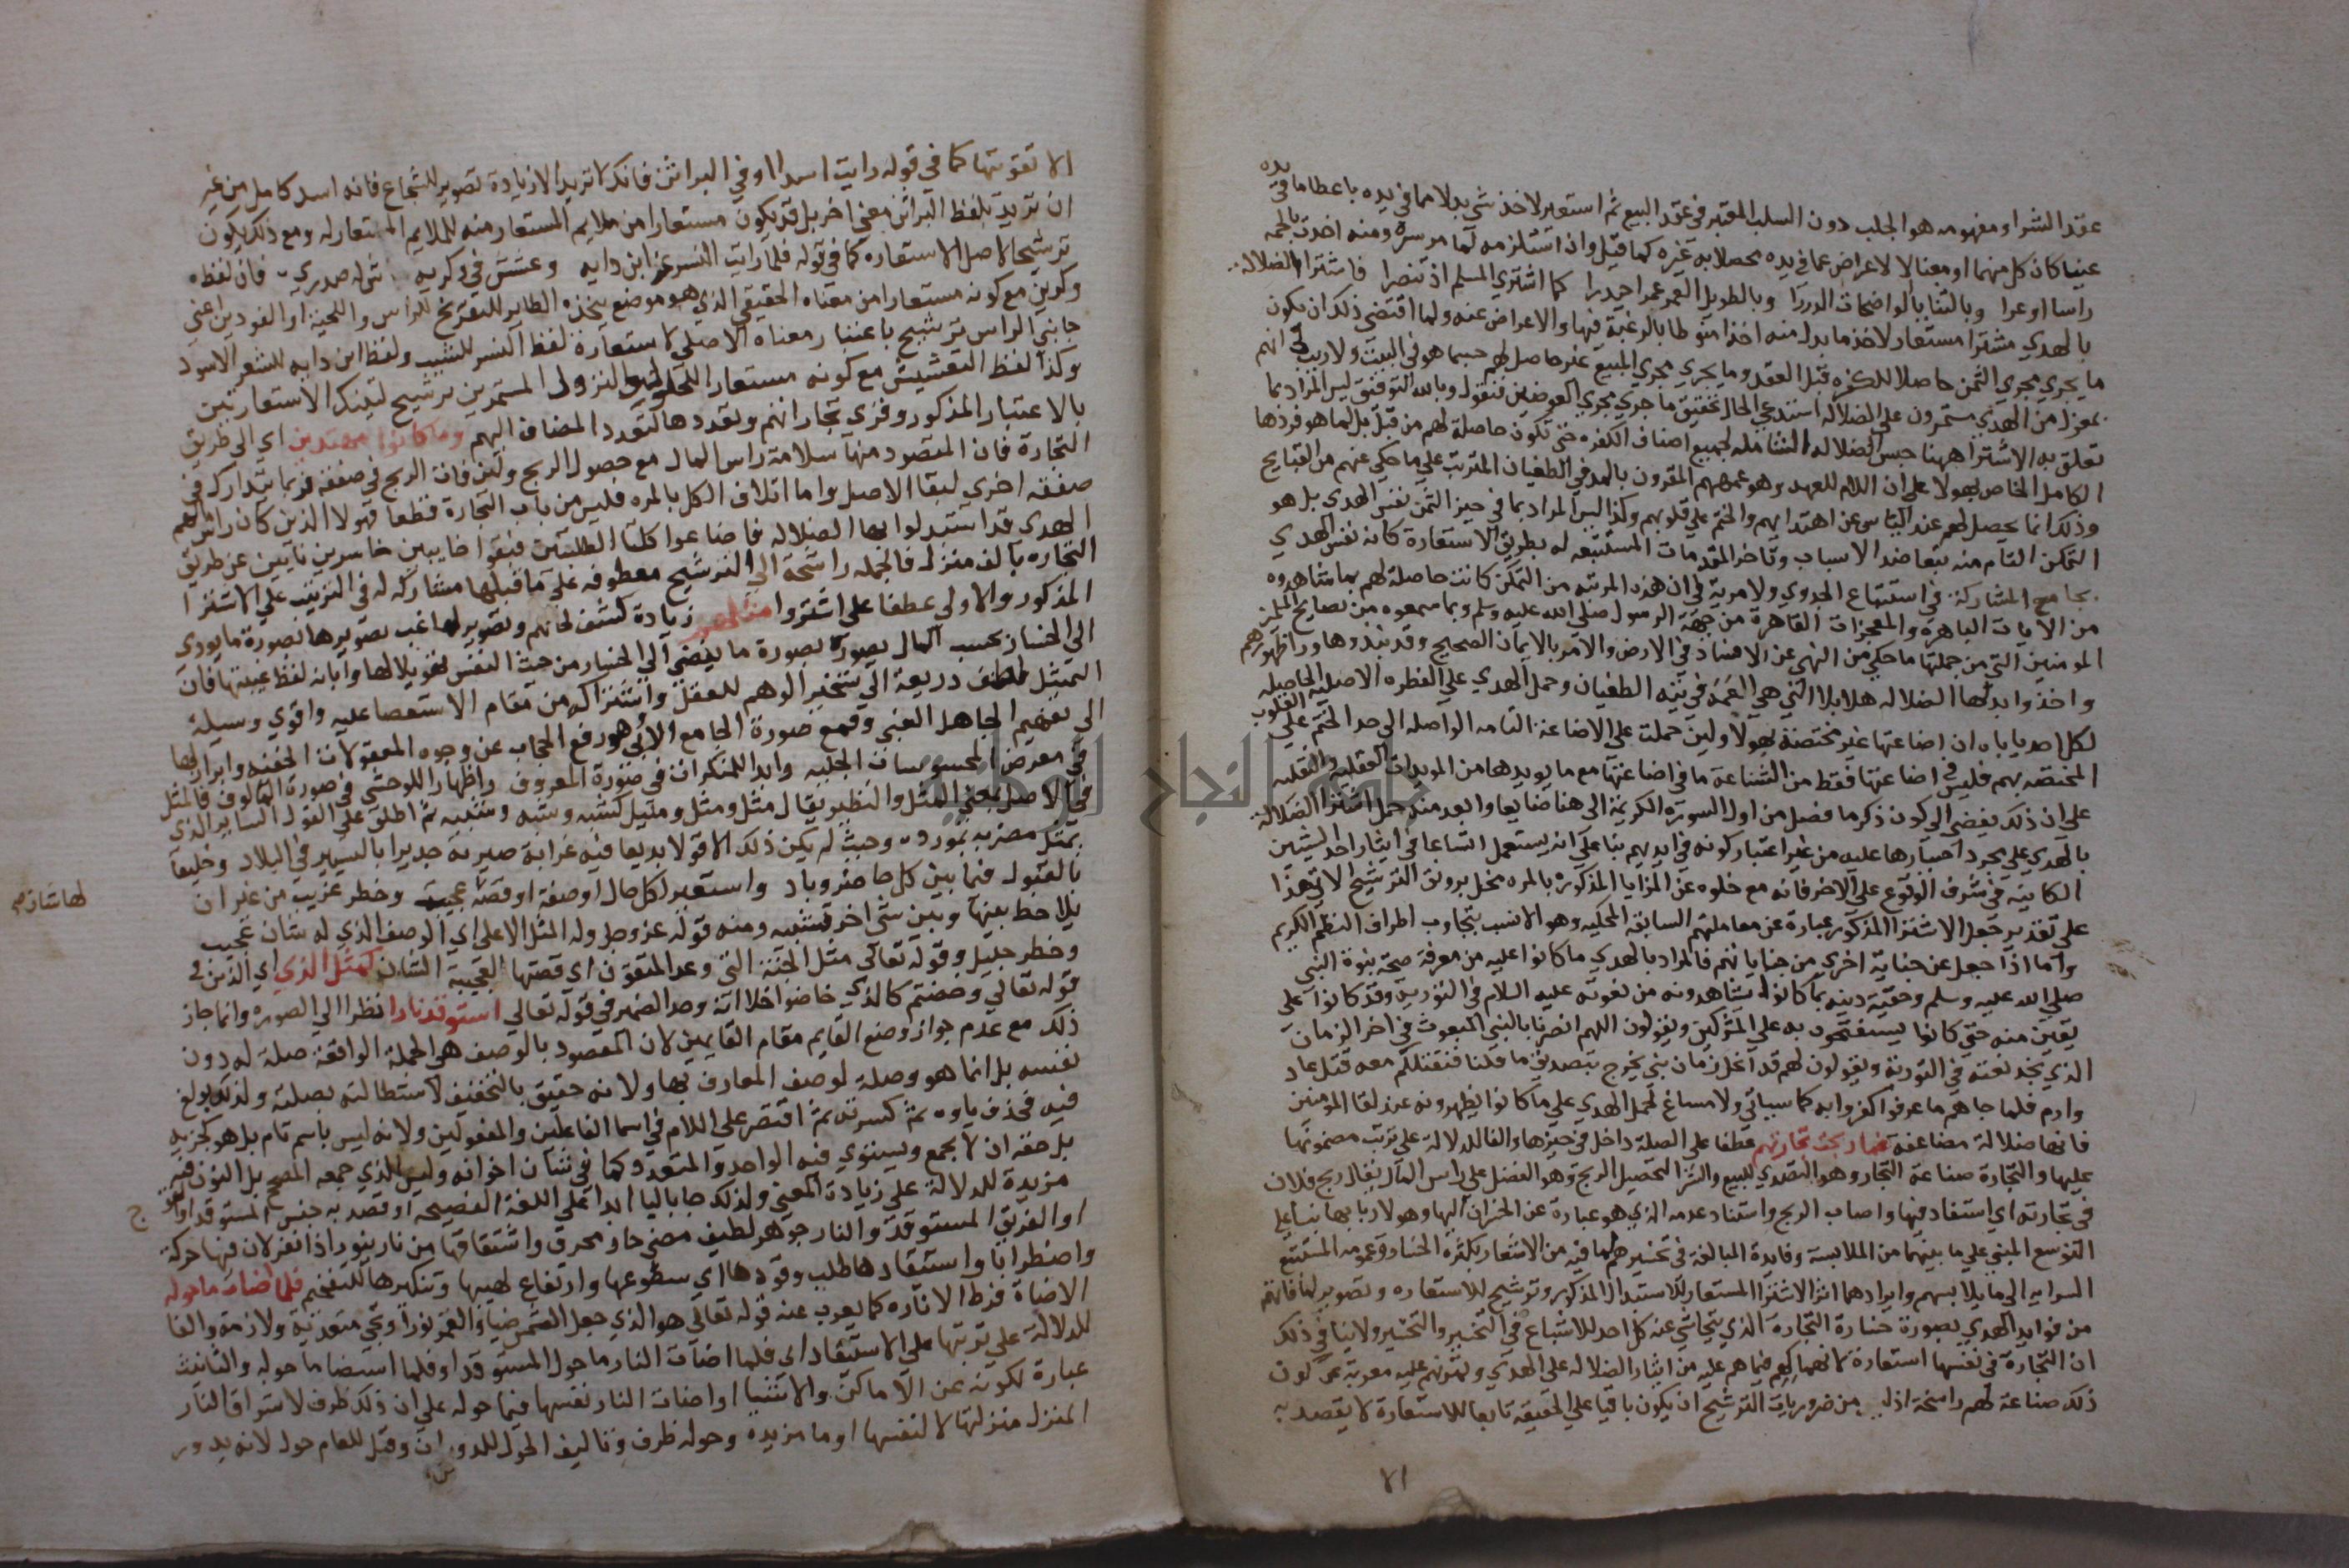 عقد الشرا ومفهومه هو الجلب دون السلب المعتبر في عقد البيع ثم استعير لاخذ شي بدلا مما في يده باعطا ما في يده
عينا كان كل منهما او معنا لا لاعراض عما في يده محصلا به غيره كما قيل وان استلزمه لما مر سره ومنه اخذت بالجمه
راسا اوعرا وبالثنايا الواضحات الدررا وبالطويل العمر عمرا جيدرا كما اشتري المسلم اذ تنصرا فاشترا الضلاله
بالهدي مشترا مستعار لاخذ ها بدلا منه اخذا منوطا بالرغبة فيها والاعراض عنه ولما اقتضي ذلك ان يكون
ما يجري مجري الثمن حاصلا للكفره قبل العقد وما يجري مجري المبيع غير حاصل لهم حسبما هو في البيت ولا ريب في انهم
بمعزل من الهدي مستمرون علي الضلاله استدعي الحال تحقيق ما جري مجري العوضين فنقول وبالله التوفيق ليس المراد بما
تعلق به الاشترا ههنا جنس الضلاله الشامله لجميع اصناف الكفره حتي تكون حاصلة لهم من قبل بل انما هو فردها
الكامل الخاص بهولا علي ان اللام للعهد وهو عمههم المقرون بالمد في الطغيان المترتب علي ما حكي عنهم من القبايح
وذلك انما يحصل لهم عند الياس عن اهتدايهم والختم علي قلوبهم وكذا ليس المراد بما في حيز الثمن نفس الهدي بل هو
التمكن التام منه بتعاضد الاسباب وتاخر المقدمات المستتبعه له بطريق الاستعارة كانه نفس الهدي
بجامع المشاركة في استتباع الجدوي ولا مرية في ان هذه المرتبه من التمكن كانت حاصلة لهم بما شاهدوه
من الايات الباهره والمعجزات القاهرة من جهة الرسول صلي الله عليه وسلم وبما سمعوه من نصايح
المومنين التي من جملتها ما حكي من النهي عن الافساد في الارض والامر بالايمان الصحيح وقد نبذوها وراظهورهم
واخذوا بدلها الضلاله هلا بلا التي هي العمه في تيه الطغيان وحمل الهدي علي الفطره الاصليه الحاصله
لكل احد ياباه ان اضاعتها غير مختصة بهولا ولين حملت علي الاضاعة التامه الواصله الي حد الختم علي القلوب
المختصه بهم فليس في اضاعتها فقط من الشناعة ما في اضاعتها مع ما يويدها من المويدات العقليه والنقليه
علي ان ذلك يفضي الي كون ذكر ما فصل من اول السورة الكريمة الي هنا ضايعا وابعد منه حمل اشترا الضلالة
بالهدي علي مجرد اختيارها عليه من غير اعتبار كونه في ايديهم بنا علي انه يستعمل اتساعا في ايثار احد الشيئين
الكاينين في شرف الوقوع علي الاخر فانه مع خلوه عن المزايا المذكوره بالمره مخل برونق الترشيح الاتي هذا
علي تقدير جعل الاشترا المذكور عبارة عن معاملتهم السابقة المحكيه وهو الانسب بتجاوب اطراف النظم الكريم
واما اذا جعل عن جناية اخري من جناياتهم فالمراد بالهدي ما كانوا عليه من معرفة صحة نبوة النبي
صلي الله عليه وسلم وحقية دينه بما كانوا يشاهدونه من نعوته عليه السلام في التورية وقد كانوا علي
يقين منه حتي كانوا يستفتحون به علي المشركين ويقولون اللهم انصرنا بالنبي المبعوث في اخر الزمان
الذي نجد نعته في التورية ويقولون لهم قد اظل زمان نبي يخرج بتصديق ما قلنا فنقتلكم معه قتل عاد
وارم فلما جاهم ما عرفوا كفروا به كما سياتي ولا مساغ لحمل الهدي علي ما كانوا يظهرونه عند لقا المومنين
فانها ضلالة مضاعفة فما ربحت تجارتهم عطفا علي الصلة داخل في حيزها والفا للدلالة علي ترتب مضمونها
عليها والتجارة صناعة التجار وهو التصدي للبيع والشرا لتحصيل الربح وهو الفضل علي راس المال يقال ربح فلان
في تجارته اي استفاد فيها واصاب الربح واسناد عدمه الذي هو عبارة عن الخسران اليها وهو لاربابها بنا علي
التوسع المبني علي ما بينهما من الملابسة وفايدة المبالغة في تخسيرهم لما فيه من الاشعار بكثرة الخسار وعمومه المستتبع
السرايه الي ما يلابسهم وايرادهما اثر الاشترا المستعار للاستبدال المذكور وترشيح للاستعاره وتصوير لما فاتهم
من فوايد الهدي بصورة خسارة التجارة الذي يتحاشي عنه كل احد للاشباع في التخسير والتحسير ولا ينافي ذلك
ان التجارة في نفسها استعارة لانهماكهم فيما هم عليه من ايثار الضلاله علي الهدي وتمرنهم عليه معربة عن كون
ذلك صناعة لهم راسخة اذ ليس من ضروريات الترشيح ان يكون باقيا علي الحقيقه تابعا للاستعارة لا يقصد به
الا
الا تقويتها كما في قوله رايت اسدا وافي البراثن فانك لا تريد الا زيادة تصوير للشجاع فانه اسد كامل من غير
ان تريد بلفظ البراثن معني اخر بل قد يكون مستعارا من ملايم المستعار منه للملايم المستعار له ومع ذلك يكون
ترشيحا لاصل الاستعاره كما في قوله فلما رايت النسر عز ابن دايه وعشش في وكريه جاش له صدري فان لفظ
وكرين مع كونه مستعارا من معناه الحقيقي الذي هو موضع يتخذه الطاير للتفريخ للراس واللحية او الفودين اعني
جانبي الراس ترشيح باعتبار معناه الاصلي لاستعارة لفظ النسر للشيب ولفظ ابن دايه للشعر الاسود
وكذا لفظ التعشيش مع كونه مستعارا للحلول والنزول المستمرين ترشيح لتينك الاستعارتين
بالاعتبار المذكور وقري تجاراتهم وتعددها لتعدد المضاف اليهم وما كانوا مهتدين اي الي طريق
التجارة فان المقصود منها سلامة راس المال مع حصول الربح ولين فات الربح في صفقه فربما يتدارك في
صفقه اخري لبقا الاصل واما اتلاف الكل بالمره فليس من باب التجارة قطعا فهولا الذين كان راس مالهم
الهدي قد استبدلوا بها الضلاله فاضاعوا كلتا الطلبتين فبقوا خايبين خاسرين نايين عن طريق
التجاره بالف منزل فالجمله راسخة الي الترشيح معطوفه علي ما قبلها مشاركه له في الترتيب علي الاشترا
المذكور والاولي عطفا علي اشتروا مثلهم زيادة كشف لحالهم وتصوير لها غب تصويرها بصورة ما يودي
الي الخسار بحسب المال بصورة ما يفضي الي الخسار من حيث النفس تهويلا لها وابانة لفظاعتها فان
التمثيل الطف ذريعة الي تسخير الوهم للعقل واستنزاله من مقام الاستعصا عليه واقوي وسيلة
الي تفهيم الجاهل الغبي وقمع صورة الجامح الابي هو رفع الحجاب عن وجوه المعقولات الخفيه وابراز لها
في معرض المحسوسات الجليه وابدا للمنكرات في صورة المعروف واظهار للوحشي في صورة المالوف والمثل
في الاصل بمعني المثل والنظير يقال مثل ومثل ومثيل كشبه وشبه وشبيه ثم اطلق علي القول الساير الذي
يمثل مضربه بمورده وحيث لم يكن ذلك الا قولا بديعا فيه غرابة صيرته جديرا بالتسيير في البلاد وخليقا
بالقبول فيما بين كل حاضر وباد واستعير لكل حال او صفة او قصة عجيبة وخطر غريب من غير ان
لها شان صح
يلاحظ بينها وبين شي اخر تشبيه ومنه قوله عز وجل وله المثل الاعلي اي الوصف الذي له شان عجيب
وخطر جليل وقوله تعالي مثل الجنة التي وعد المتقون اي قصتها العجيبة الشان كمثل الذي اي الذين في
قوله تعالي وخضتم كالذي خاضوا خلا انه وحد الضمير في قوله تعالي استوقد نارا نظرا الي الصوره وانما جاز
ذلك مع عدم جواز وضع القايم مقام القايمين لان المقصود بالوصف هي الجملة الواقعة صلة له دون
نفسه بل انما هو وصلة لوصف المعارف بها ولانه حقيق بالتخفيف لاستطالته بصلته ولذلك بولغ
فيه فحذف ياوه ثم كسرته ثم اقتصر علي اللام في اسما الفاعلين والمفعولين ولانه ليس باسم تام بل هو كجزيه
بل حقه ان لا يجمع ويستوي فيه الواحد والمتعدد كما في شان اخواته وليس الذين جمعه المصحح بل النون فيه
مزيدة للدلالة علي زيادة المعني ولذلك جا باليا ابدا علي اللغة الفصيحه او قصد به جنس المستوقد او الفوج
او الفريق المستوقد والنار جوهر لطيف مضي حار محرق واشتقاقها من نار ينور اذا نفر لان فيها حركة
واضطرابا واستيقادها طلب وقودها اي سطوعها وارتفاع لهبها وتنكيرها للتفخيم فلما اضات ما حوله
الاضاة فرط الاناره كما يعرب عنه قوله تعالي هو الذي جعل الشمس ضيا والقمر نورا وتجي متعدية ولازمة والفا
للدلالة علي ترتبها علي الاستيقاد اي فلما اضات النار ما حول المستوقد او فلما استضا ما حوله والتانيث
عبارة لكونه عن الاماكن والاشيا او اضات النار نفسها فيما حوله علي ان ذلك ظرف لاشراق النار
المنزل منزلتها لا لنفسها او ما مزيده وحوله ظرف وتاليف الحول للدوران وقيل للعام حول لانه يدور